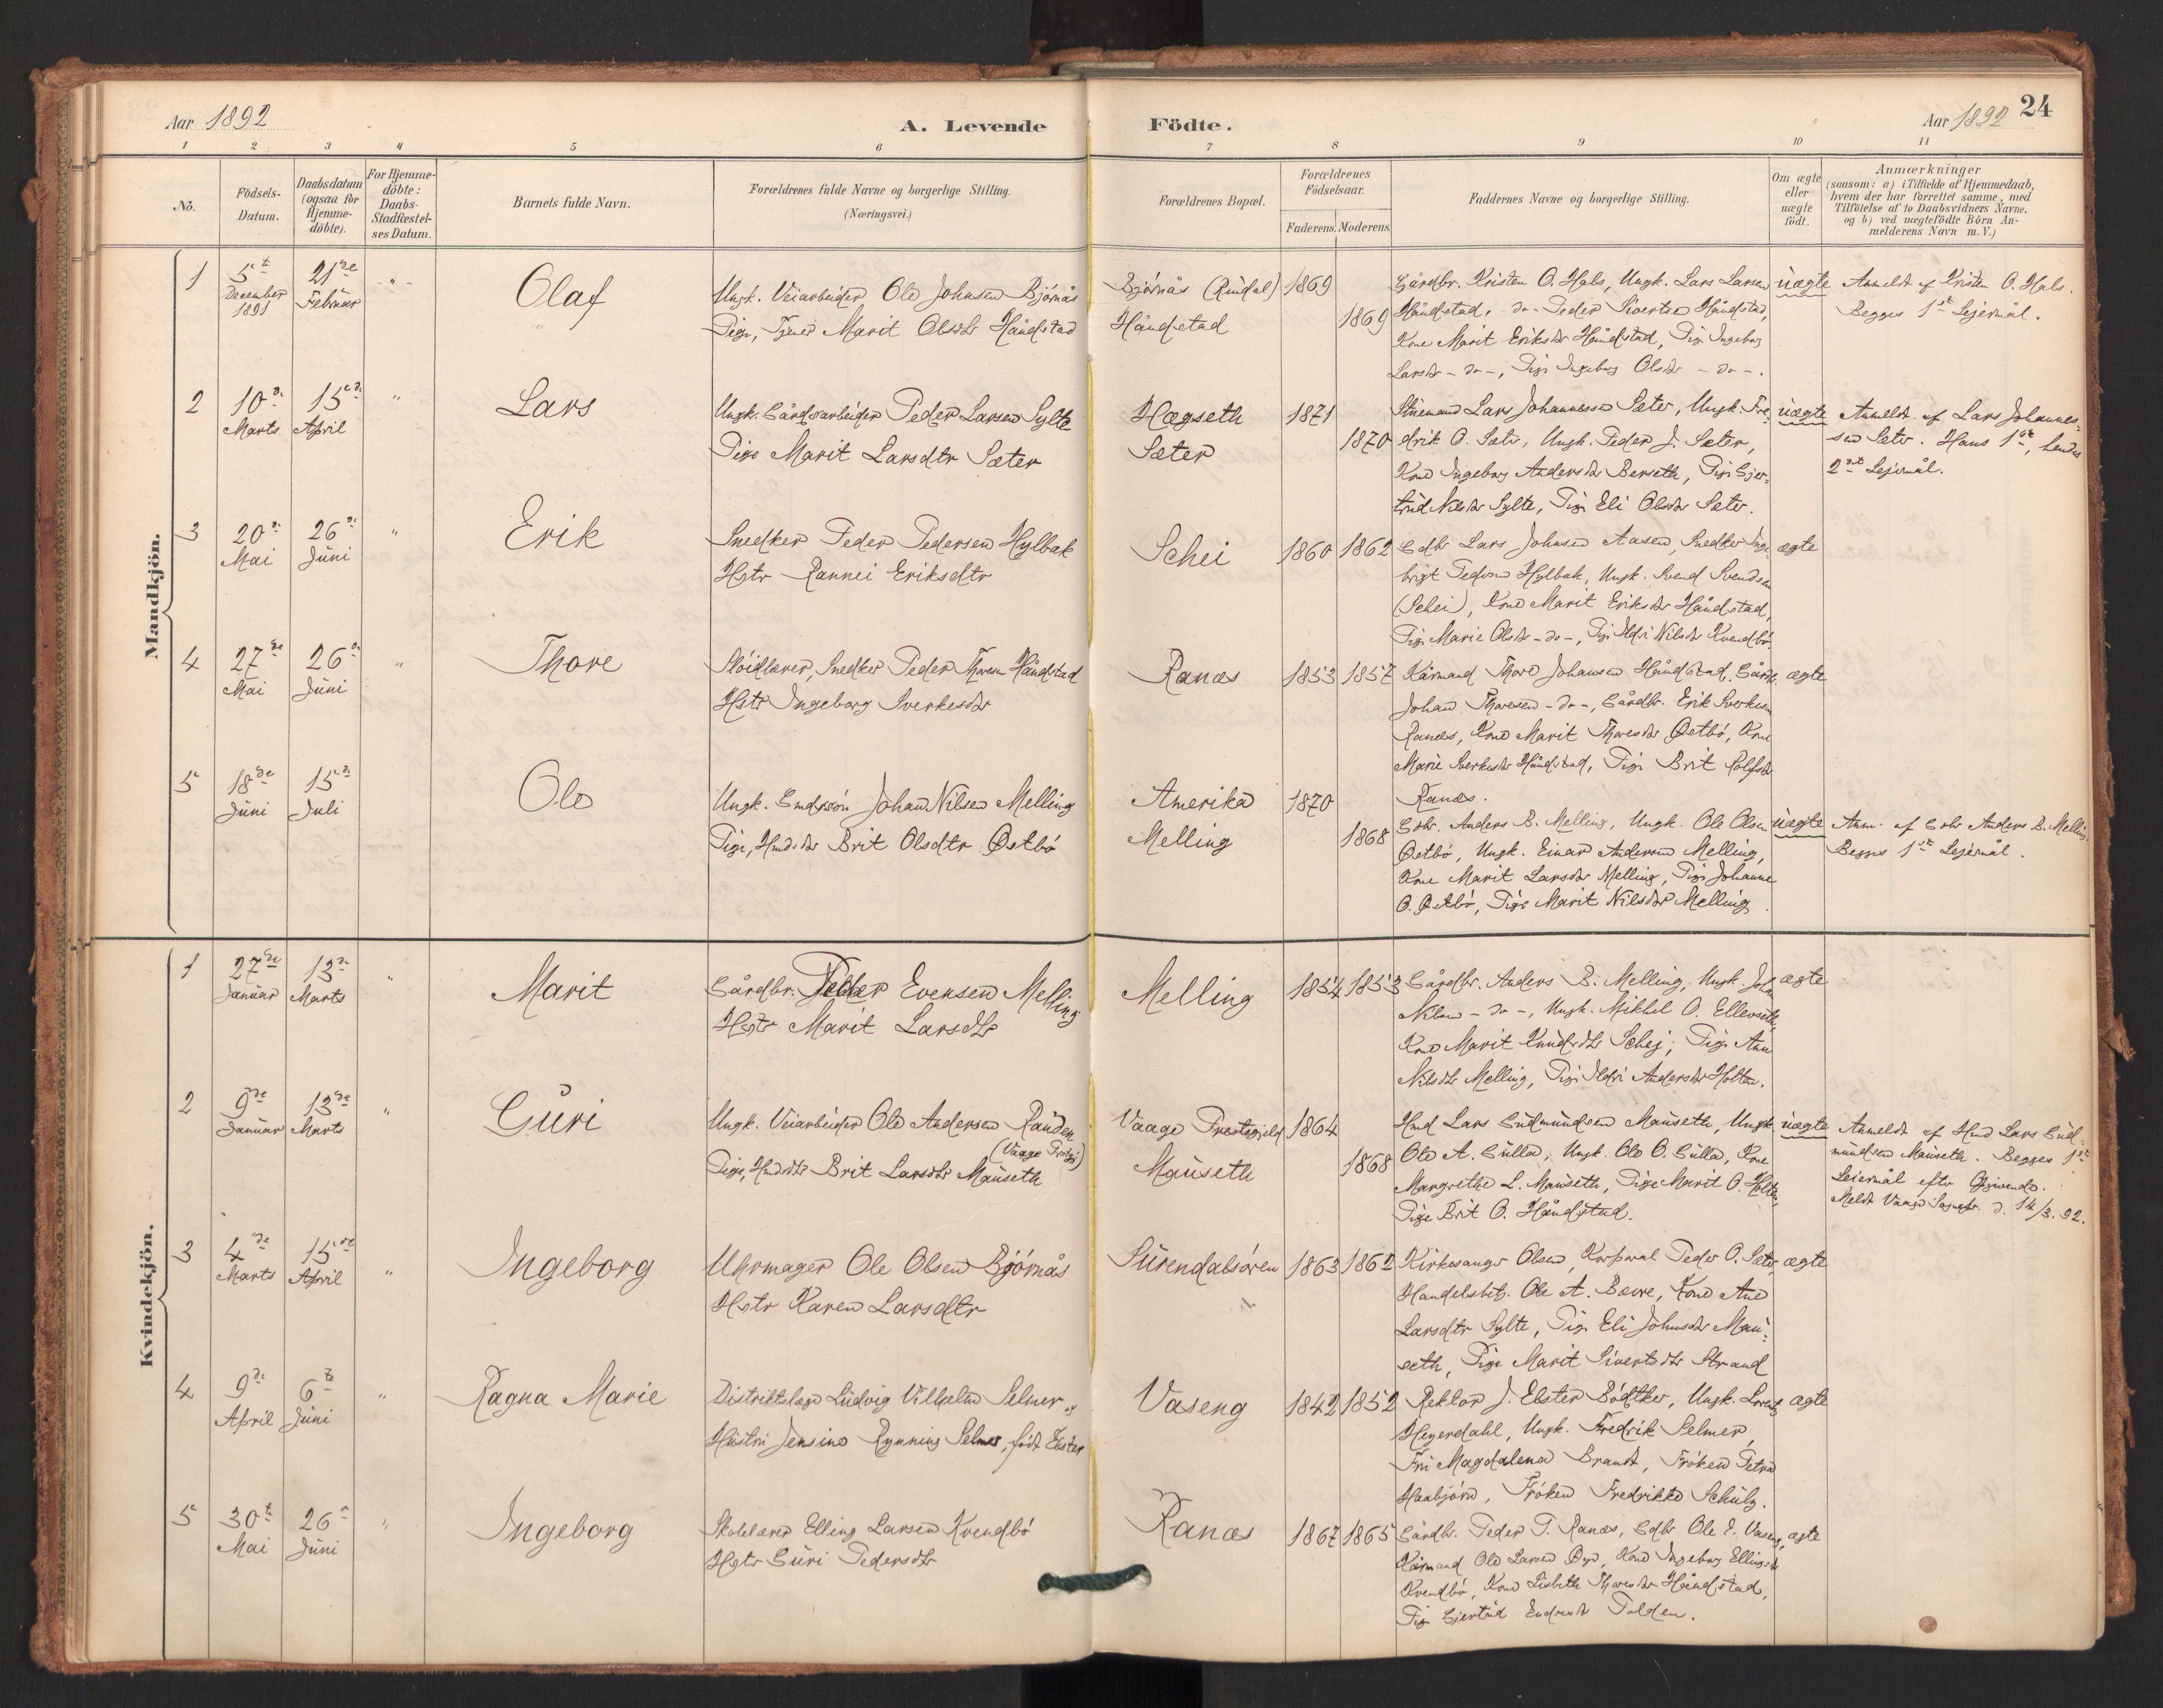 Aar 1892
A. Levende
Födte.
Aar 1892
24
1 2 3 4 5 6 7 8 9 10 11
No.
Födsels-
Datum.
Daabsdatum
(ogsaa för
Hjemme-
döbte).
For Hjemme-
döbte:
Daabs-
Stadfæstel-
ses Datum.
Barnets fulde Navn.
Forældrenes fulde Navne og borgerlige Stilling.
(Næringsvei.)
Forældrenes Bopæl.
Forældrenes
Födselsaar.
Faderens. Moderens.
Faddernes Navne og borgerlige Stilling.
Om ægte
eller
uægte
födt.
Anmærkninger
(saasom: a) i Tilfælde af Hjemmedaab,
hvem der har forrettet samme, med
Tilföielse af to Daabsvidners Navne.
og b) ved uægtefödte Börn An-
melderens Navn m. V.)
Mandkjön.
1
5t
December
1891
21de
Februar
- " -
Olaf
Ungk. Veiarbeider Ole Johnsen Bjørnås
Pige, Tjener Marit Olsdtr Håndstad
Bjørnås (Rindal)
Håndstad
1869
1869
Gårdbr. Kristen O. Hals, Ungk. Lars Larsen
Håndstad, - do - Peder Sivertsen Håndstad,
Kone Marit Eriksdtr Håndstad, Pige Ingeborg
Larsdtr - do -, Pige Ingeborg Olsdtr - do -.
uægte
Anmeldt af Kristen O. Hals.
Begges 1ste Lejermål.
2
10de
Marts
15de
April
"
Lars
Ungk. Gårdsarbeider Peder Larsen Sylte
Pige Marit Larsdtr Sæter
Hægseth
Sæter
1871
1870
Lars Johannessen Sæter, Ungk. Fre-
drik O. Sæter, Ungk. Peder J. Sæter,
Kone Ingeborg Andersdtr Berseth, Pige Gjer-
trud Nilsdtr Sylte, Pige Eli Olsdtr Sæter.
uægte
Anmeldt af Lars Johannes-
sen Sæter. Hans 1ste, hendes
2det Lejermål.
3
20de
Mai
26de
Juni
"
Erik
Snedker Peder Pedersen Hylbak
Hstr Rannei Eriksdtr
Schei
1860 1862
Gdbr Lars Johnsen Aasen, Snedker Inge-
brigt Pedersen Hylbak, Ungk. Svend Svendsen
(Schei), Kone Marit Eriksdtr Håndstad,
Pige Marie Olsdtr - do -, Pige Ildri Nilsdtr Kvendbø.
ægte
4
27de
Mai
26de
Juni
"
Thore
Sløidlærer, Snedker Peder Thoresen Håndstad
Hstr Ingeborg Sverkesdtr
Ranæs
1853 1857
Kårmand Thore Johansen Håndstad, Gårdbr.
Johan Thoresen - do -, Gårdbr. Erik Sverkesen
Ranæs, Kone Marit Thoresdtr Østbø, Kone
Marie Sverkesdtr Håndstad, Pige Brit Rolfsdtr
Ranæs.
ægte
5
18de
Juni
15de
Juli
Ole
Ungk. Johan Nilsen Melling
Pige, Brit Olsdtr Østbø
Amerika
Melling
1870
1868
Gdbr. Anders B. Melling, Ungk. Ole Olsen
Østbø, Ungk. Einar Andersen Melling,
Kone Marit Larsdtr Melling, Pige Johanne
O. Østbø, Pige Marit Nilsdtr Melling.
uægte
Anm. af Gdbr Anders B. Melling.
Begges 1ste Lejermål.
Kvindekjön.
1
27de
Januar
13de
Marts
"
Marit
Gårdbr. Peder Evensen Melling
Hstr Marit Larsdtr
Melling
1854 1853
Gårdbr. Anders B. Melling, Ungk. John
Nilsen - do -, Ungk. Mikkel O. Ellevseth,
Kone Marit Knudsdtr Schej, Pige Ane
Nilsdtr Melling, Pige Ildri Andersdtr Holten.
ægte
2
9de
Januar
13de
Marts
"
Guri
Ungk. Veiarbeider Ole Andersen Randen
(Vaage Prstgj)
Pige, Brit Larsdtr Mauseth
Vaage Præstegjeld
Mauseth
1864
1868
Hmd Lars Gudmundsen Mauseth, Ungk.
Ole A. Gulla, Ungk. Ole O. Gulla, Kone
Margrethe L. Mauseth, Pige Marit O. Holten,
Pige Brit O. Håndstad.
uægte
Anmeldt af Hmd Lars Gud-
mundsen Mauseth. Begges 1ste
Leiermål efter Opgivende.
Meldt Vaage Sognepr. d. 14/3. 92.
3
4de
Marts
15de
April
"
Ingeborg
Uhrmager Ole Olsen Bjørnås
Hstr Karen Larsdtr
Surendalsøren
1863 1862
Kirkesanger Olsen, Korporal Peder O. Sæter,
Handelsbetj. Ole A. Bævre, Kone Ane
Larsdtr Sylte, Pige Eli Johnsdtr Mau-
seth, Pige Marit Sivertsdtr Strand
ægte
4
9de
April
6te
Juni
"
Ragna Marie
Distriktslæge Ludvig Vilhelm Selmer og
Hustru Jensine Rynning Selmer, født Ebster
Vaseng
1842 1852
Rektor J. Elster Bødtker, Ungk. Lorentz
Heyerdahl, Ungk. Fredrik Selmer,
Fru Magdalena Brandt, Frøken Petra
Haabjørn, Frøken Fredrikke Schulz.
ægte
5
30te
Mai
26de
Juni
"
Ingeborg
Skolelærer Elling Larsen Kvendbø
Hstr Guri Pedersdtr
Ranæs
1867 1865
Gårdbr. Peder T. Ranæs, Gdbr Ole E. Vaseng,
Kårmand Ole Larsen Øye, Kone Ingeborg Ellingsdtr
Kvendbø, Kone Lisbeth Thoresdtr Håndstad,
Pige Gjertrud Endresdtr Tolden.
ægte